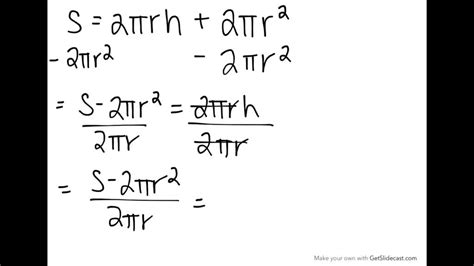 S = 2πrh + 2πr²
- 2πr² - 2πr²
= S-2πr² / 2πr = 2πrh / 2πr
= S-2πr² / 2πr =
Make your own with GetSlidecast.com